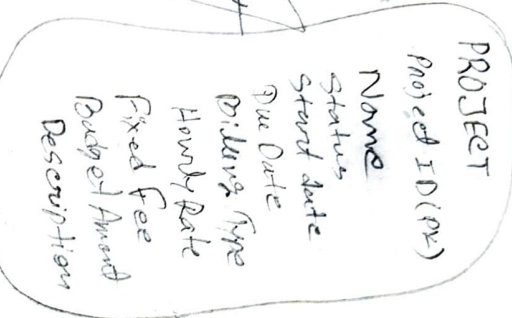 PROJECT
Project ID(PK)
Name
Status
Start date
Due Date
Billing Type
Hourly Rate
Fixed fee
Budget Amount
Description